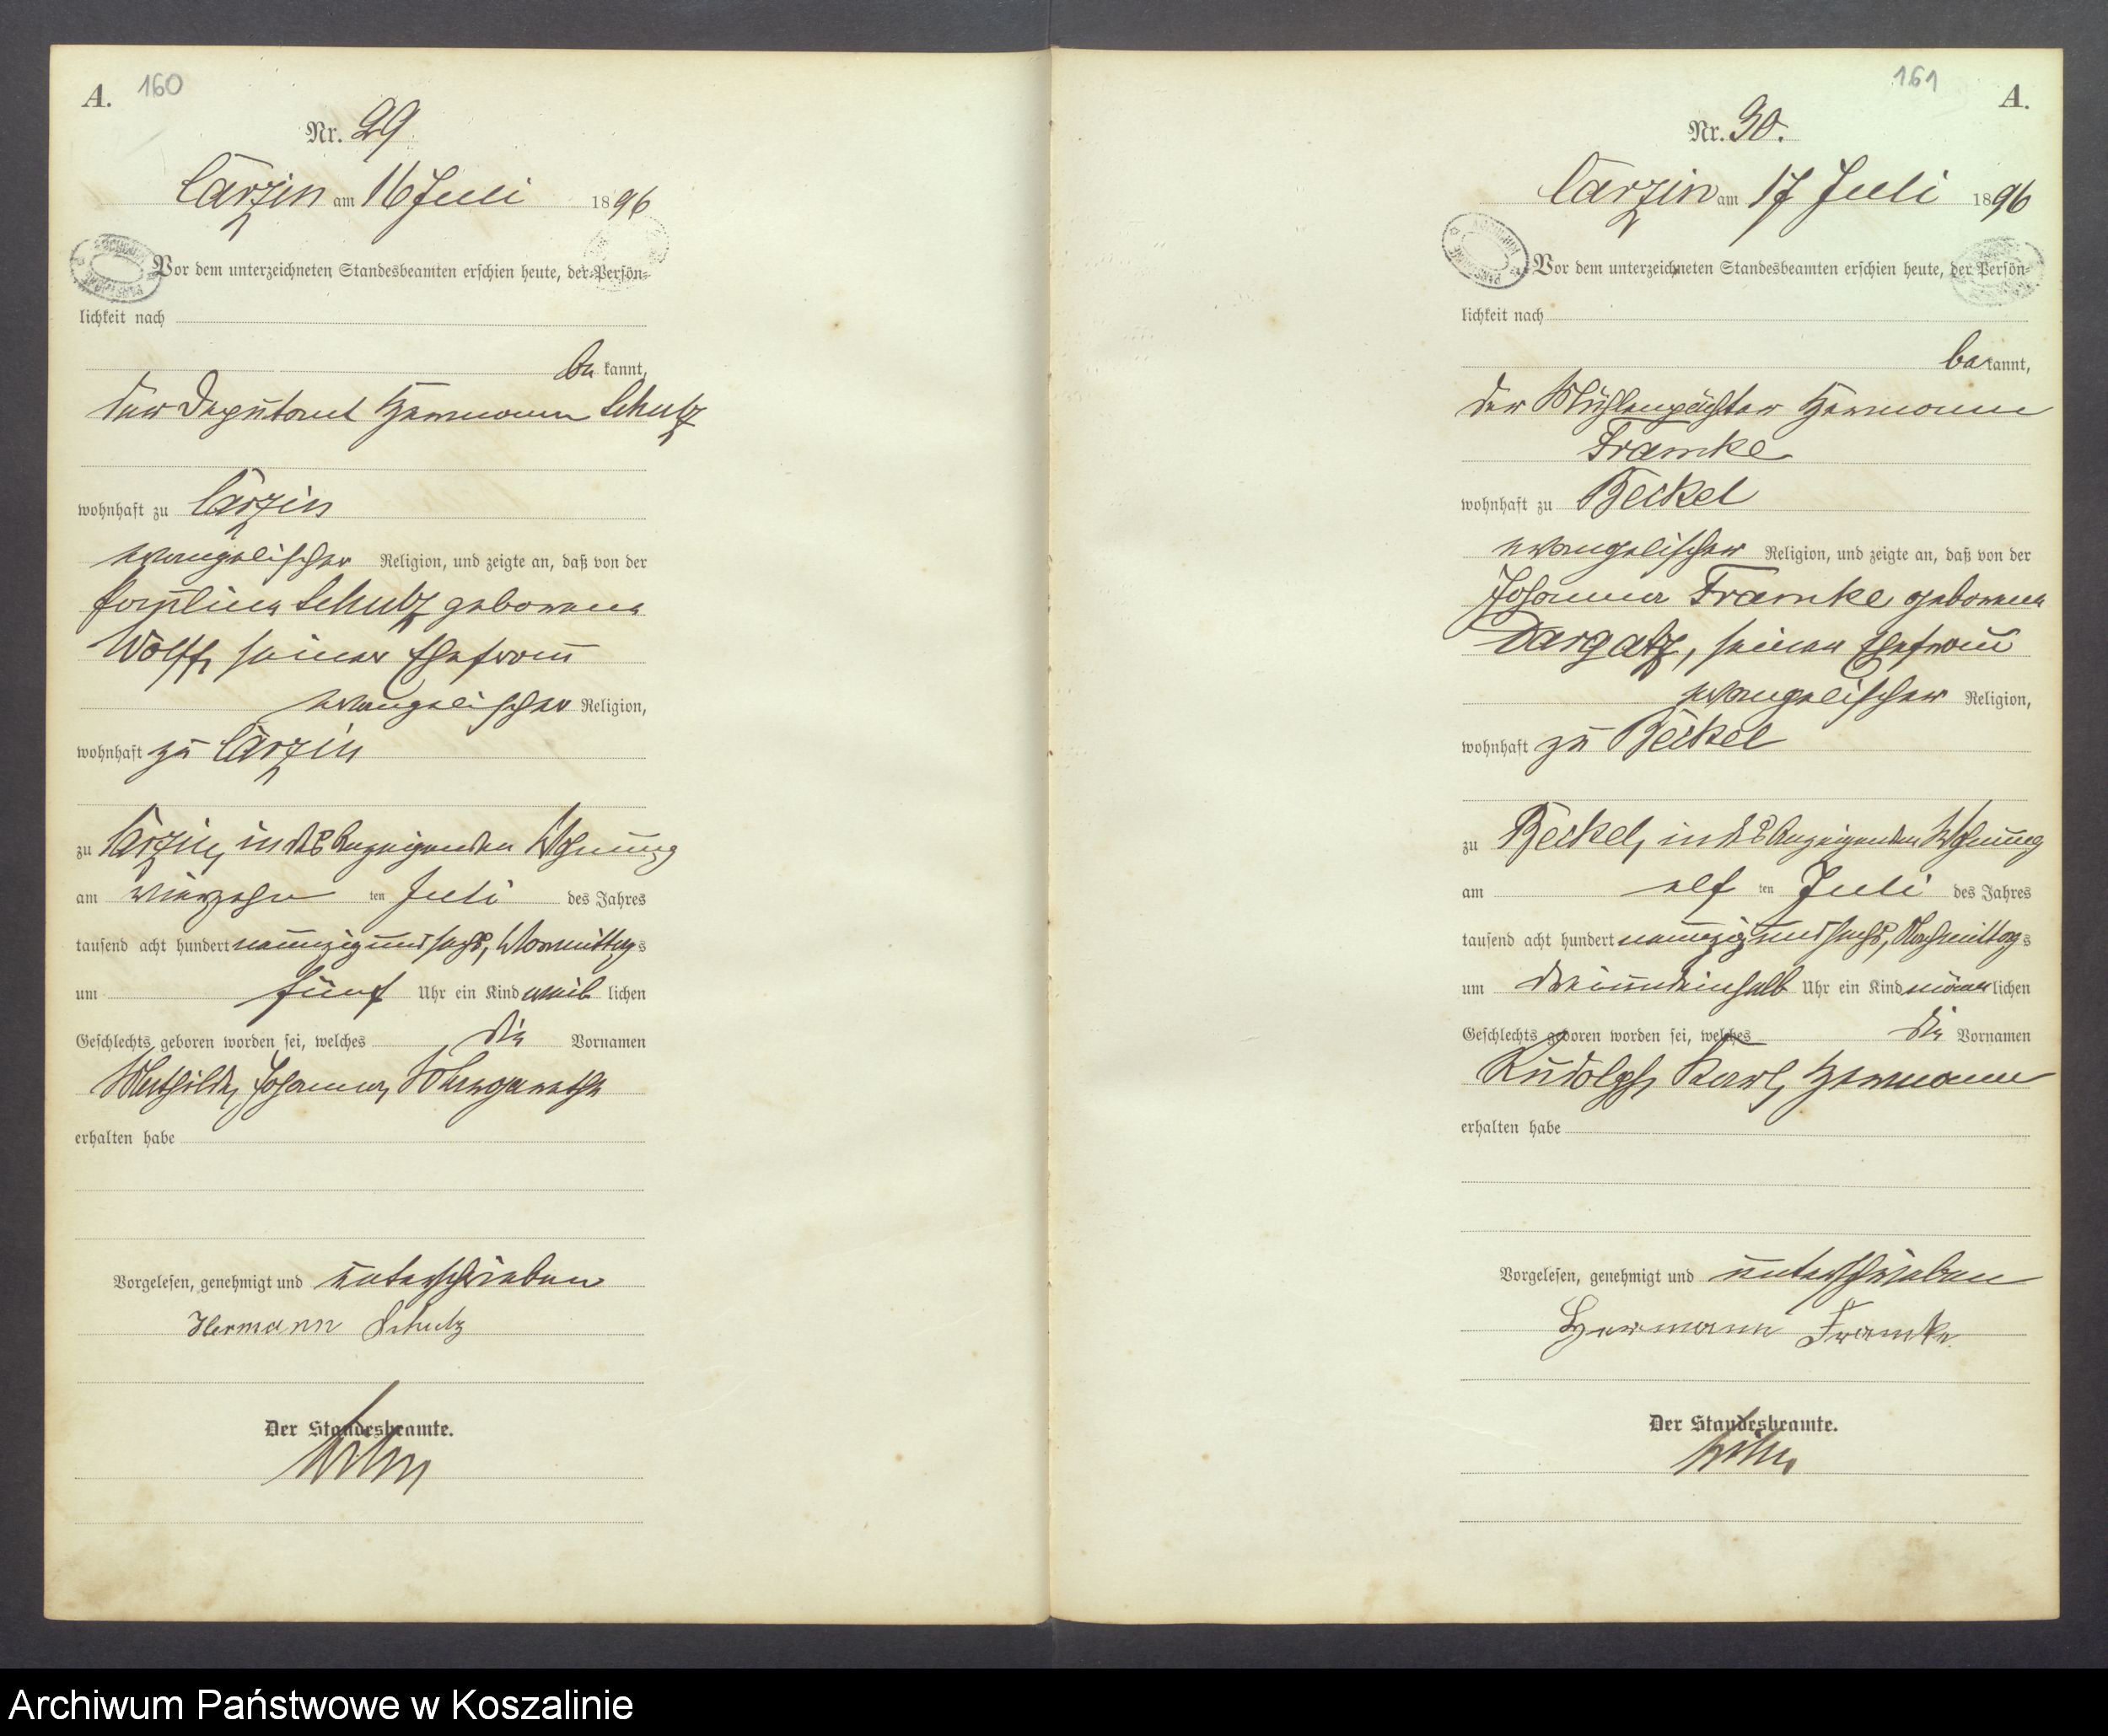 A. 160
Nr. 29
Carzin am 16 Juli 1896
Vor dem unterzeichneten Standesbeamten erschien heute, der Persön-
lichkeit nach
be kannt,
der Deputant Hermann Schulz
wohnhaft zu Carzin
evangelischer Religion, und zeigte an, daß von der
Schulz geborene
Wolff, seiner Ehefrau
evangelischer Religion,
wohnhaft zu Carzin
zu Carzin, in des Anzeigenden Wohnung
am vierzehn ten Juli des Jahres
tausend acht hundert neunzig und sechs, Vormittags
um fünf Uhr ein Kind weib lichen
Geschlechts geboren worden sei, welches die Vornamen
Johanna,
erhalten habe
Vorgelesen, genehmigt und unterschrieben
Hermann Schulz
Der Standesbeamte.
161 A.
Nr. 30.
Carzin am 17 Juli 1896
Vor dem unterzeichneten Standesbeamten erschien heute, der Persön-
lichkeit nach
be kannt,
der Mühlenpächter Hermann
Framke
wohnhaft zu Beckel
evangelischer Religion, und zeigte an, daß von der
Johanna Framke geborene
Dargatz, seiner Ehefrau
evangelischer Religion,
wohnhaft zu Beckel
zu Beckel, in des Anzeigenden Wohnung
am elf ten Juli des Jahres
tausend acht hundert neunzig und sechs, Nachmittags
um drei und einhalb Uhr ein Kind männ lichen
Geschlechts geboren worden sei, welches die Vornamen
Rudolph, Karl, Hermann
erhalten habe
Vorgelesen, genehmigt und unterschrieben
Hermann Framke.
Der Standesbeamte.
Archiwum Państwowe w Koszalinie